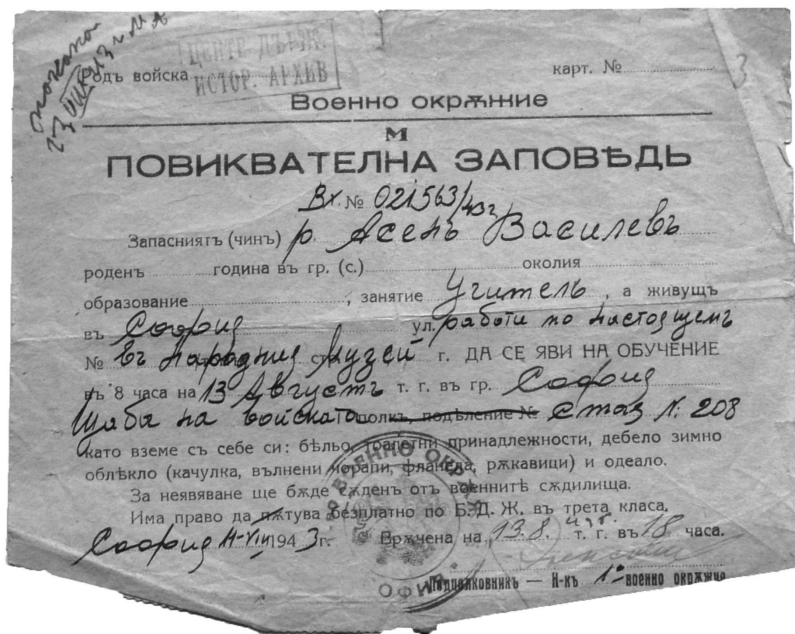 ЦЕНТР. ДЪРЖ.
ИСТОР. АРХИВ
Родъ войска карт. №
3
Военно окрѫжие
М
ПОВИКВАТЕЛНА ЗАПОВѢДЬ
Вх. № 021563/43 г
Запасниятъ (чинъ) р. Асенъ Василевъ
роденъ година въ гр. (с.) околия
образование , занятие Учитель , а живущъ
въ София ул. работи по настоящемъ
№ въ Народния Музей г. ДА СЕ ЯВИ НА ОБУЧЕНИЕ
въ 8 часа на 13 Августъ т. г. въ гр. София
Щаба на войската полкъ, подѣление № стая № 208
като вземе съ себе си: бѣльо, тоалетни принадлежности, дебело зимно
облѣкло (качулка, вълнени чорапи, фланела, рѫкавици) и одеало.
За неявяване ще бѫде сѫденъ отъ военнитѣ сѫдилища.
Има право да пѫтува безплатно по Б. Д. Ж. въ трета класа.
София 1943 г. Врѫчена на 13.8. т. г. въ 18 часа.
Подполковникъ — Н-къ 1 военно окрѫжие